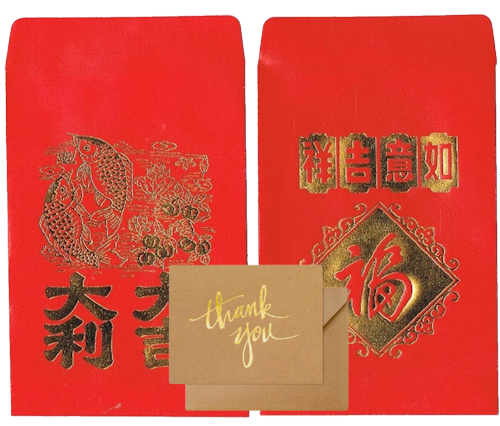 大吉
大利
如意吉祥
福
thank
you